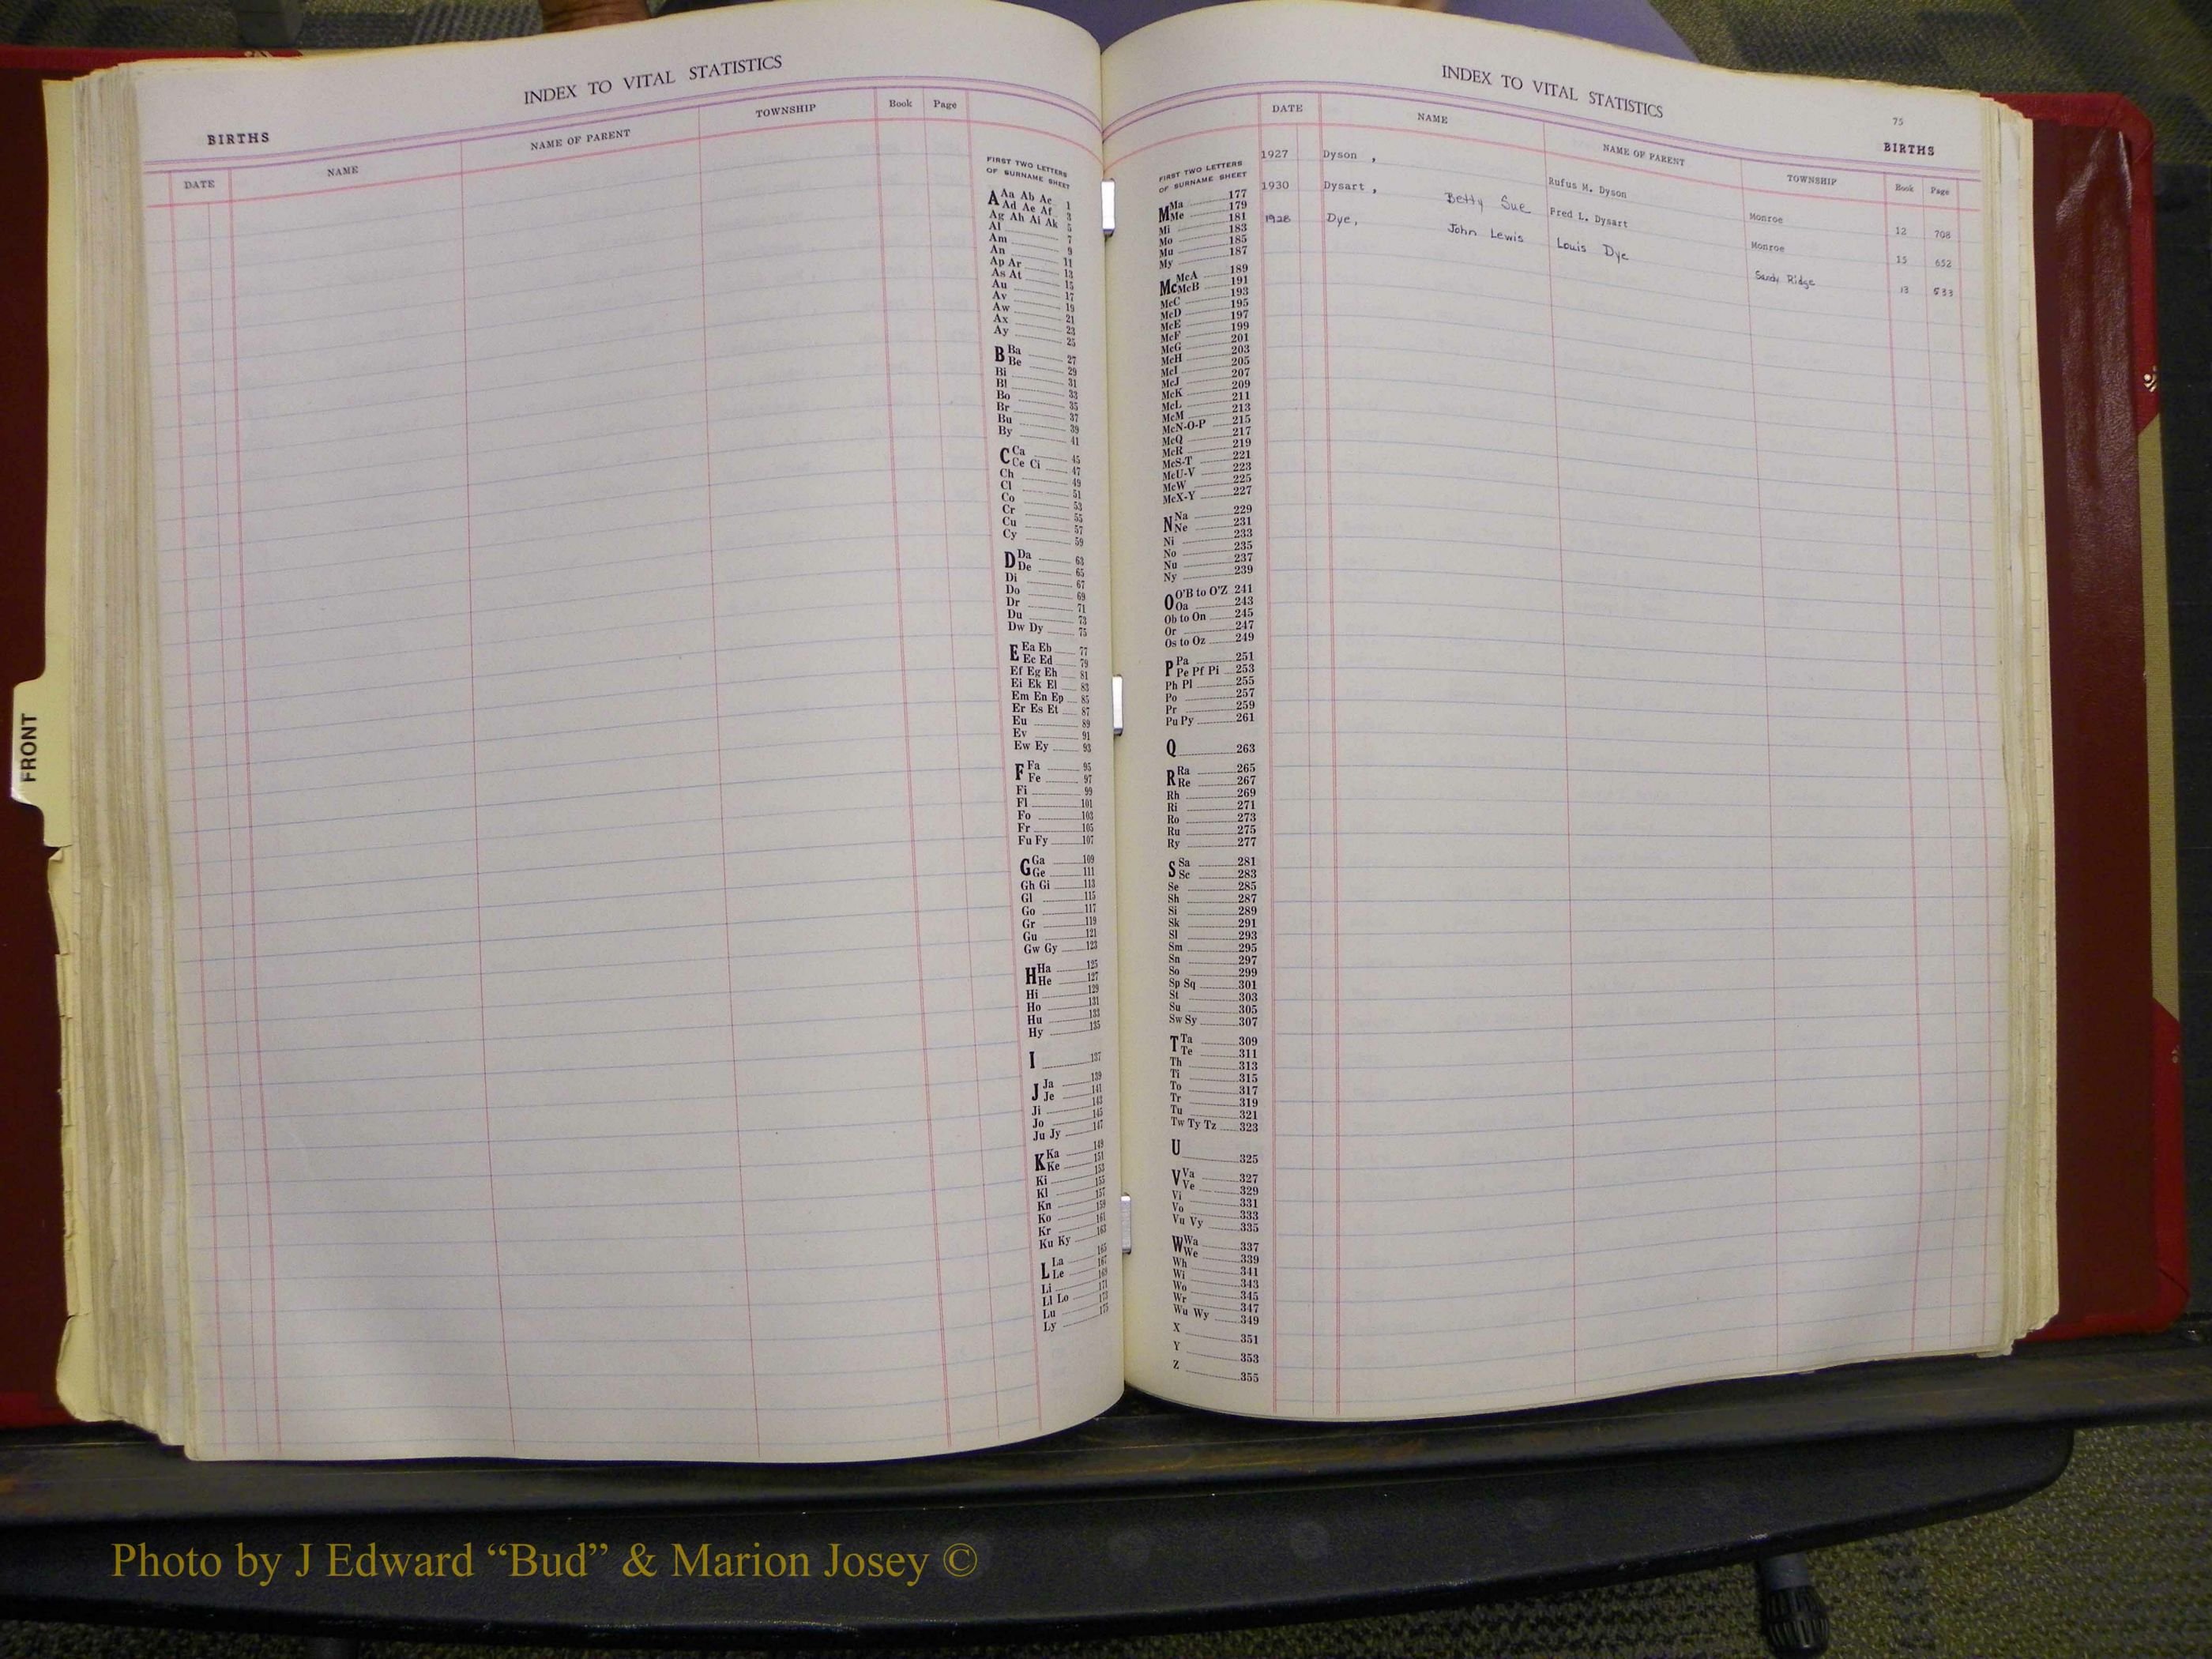 INDEX TO VITAL STATISTICS
BIRTHS
DATE NAME NAME OF PARENT TOWNSHIP Book Page
FIRST TWO LETTERS
OF SURNAME SHEET
A Aa Ab Ac 1
Ad Ae Af 3
Ag Ah Ai Ak 5
Al 7
Am 9
An 11
Ap Ar 13
As At 15
Au 17
Av 19
Aw 21
Ax 23
Ay 25
B Ba 27
Be 29
Bi 31
Bl 33
Bo 35
Br 37
Bu 39
By 41
C Ca 45
Ce Ci 47
Ch 49
Cl 51
Co 53
Cr 55
Cu 57
Cy 59
D Da 63
De 65
Di 67
Do 69
Dr 71
Du 73
Dw Dy 75
E Ea Eb 77
Ec Ed 79
Ef Eg Eh 81
Ei Ek El 83
Em En Ep 85
Er Es Et 87
Eu 89
Ev 91
Ew Ey 93
F Fa 95
Fe 97
Fi 99
Fl 101
Fo 103
Fr 105
Fu Fy 107
G Ga 109
Ge 111
Gh Gi 113
Gl 115
Go 117
Gr 119
Gu 121
Gw Gy 123
H Ha 125
He 127
Hi 129
Ho 131
Hu 133
Hy 135
I 137
J Ja 139
Je 141
Ji 143
Jo 145
Ju Jy 147
K Ka 149
Ke 151
Ki 153
Kl 155
Kn 157
Ko 159
Kr 161
Ku Ky 163
L La 165
Le 167
Li 169
Ll Lo 171
Lu 173
Ly 175
FRONT
INDEX TO VITAL STATISTICS
75
BIRTHS
DATE NAME NAME OF PARENT TOWNSHIP Book Page
1927 Dyson , Rufus M. Dyson Monroe 12 708
1930 Dysart , Betty Sue Fred L. Dysart Monroe 15 652
1928 Dye, John Lewis Louis Dye Sandy Ridge 13 533
FIRST TWO LETTERS
OF SURNAME SHEET
M Ma 177
Me 179
Mi 181
Mo 183
Mu 185
My 187
Mc McA 189
McB 191
McC 193
McD 195
McE 197
McF 199
McG 201
McH 203
McI 205
McJ 207
McK 209
McL 211
McM 213
McN-O-P 215
McQ 217
McR 219
McS-T 221
McU-V 223
McW 225
McX-Y 227
N Na 229
Ne 231
Ni 233
No 235
Nu 237
Ny 239
O O'B to O'Z 241
Oa 243
Ob to On 245
Or 247
Os to Oz 249
P Pa 251
Pe Pf Pi 253
Ph Pl 255
Po 257
Pr 259
Pu Py 261
Q 263
R Ra 265
Re 267
Rh 269
Ri 271
Ro 273
Ru 275
Ry 277
S Sa 281
Sc 283
Se 285
Sh 287
Si 289
Sk 291
Sl 293
Sm 295
Sn 297
So 299
Sp Sq 301
St 303
Su 305
Sw Sy 307
T Ta 309
Te 311
Th 313
Ti 315
To 317
Tr 319
Tu 321
Tw Ty Tz 323
U 325
V Va 327
Ve 329
Vi 331
Vo 333
Vu Vy 335
W Wa 337
We 339
Wh 341
Wi 343
Wo 345
Wr 347
Wu Wy 349
X 351
Y 353
Z 355
Photo by J Edward “Bud” & Marion Josey ©